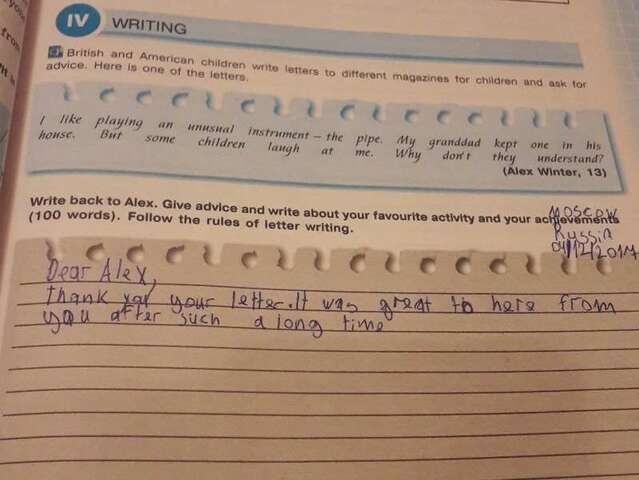 IV WRITING
British and American children write letters to different magazines for children and ask for
advice. Here is one of the letters.
I like playing an unusual instrument – the pipe. My granddad kept one in his
house. But some children laugh at me. Why don't they understand?
(Alex Winter, 13)
Write back to Alex. Give advice and write about your favourite activity and your achievements
(100 words). Follow the rules of letter writing.
Moscow
Russia
04/12/2017
Dear Alex,
thank your letter. It was great to here from
you after such a long time